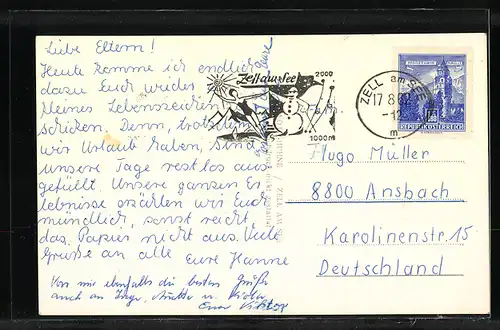 Liebe Eltern!
Heute komme ich endlich
dazu Euch wieder
kleines Lebenszeichen
schicken. Denn, trotz
wir Urlaub haben, sind
unsere Tage restlos aus-
gefüllt. Unsere ganzen Er-
lebnisse erzählen wir Euch
mündlich, sonst reicht
das Papier nicht aus. Viele
Grüße an alle Eure Hanne
Von mir ebenfalls die besten Grüße
auch an Inge, u.
Euer Viktor
Zell am See
2000
1000 m
ZELL am SEE
17.8.
REPUBLIK ÖSTERREICH
Fam.
Hugo Müller
8800 Ansbach
Karolinenstr. 15
Deutschland